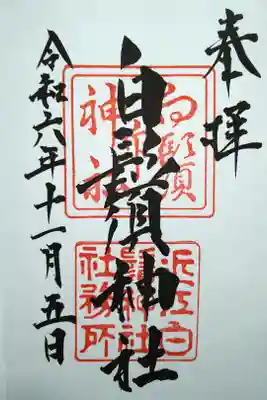 奉拝
白鬚神社
白鬚神社
近江白鬚神社社務所
令和六年十一月五日